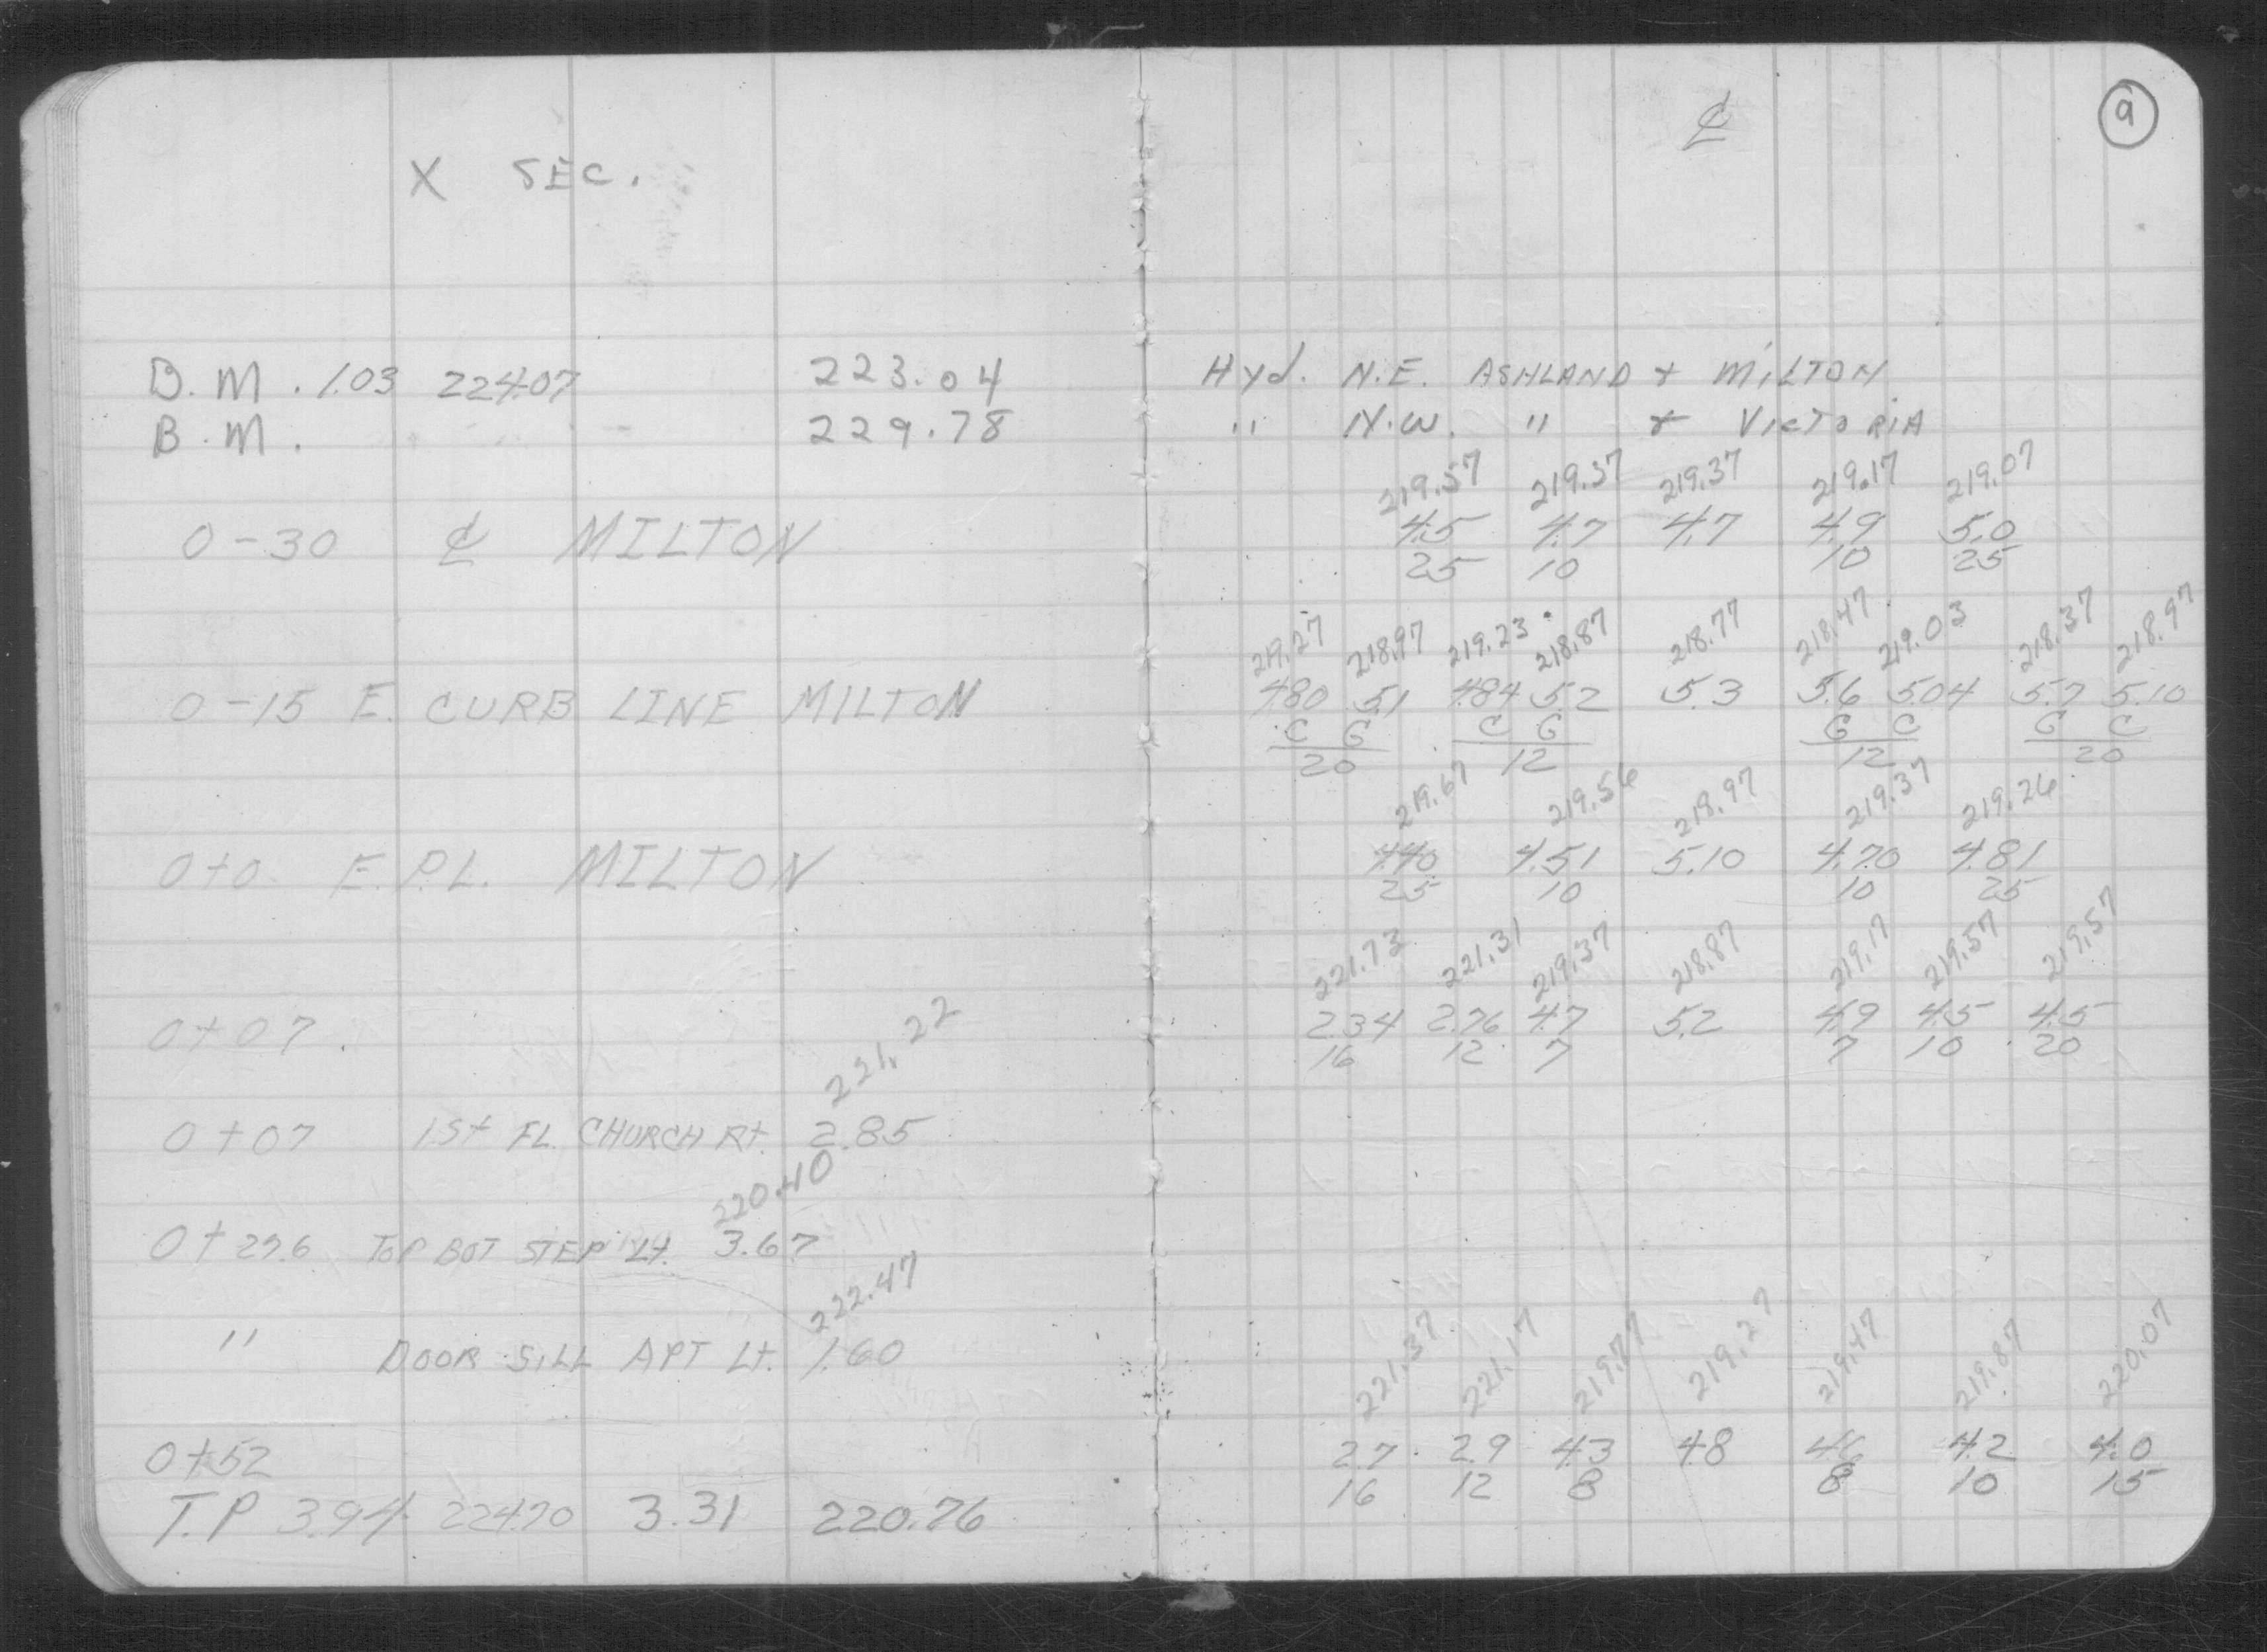 X SEC.
B.M. 1.03 224.07 223.04
B.M. 229.78
0-30 ₵ MILTON
0-15 E. CURB LINE MILTON
0+0 E.P.L. MILTON
0+07
221.22
0+07 1st FL. CHURCH Rt. 2.85
220.40
0+29.6 TOP BOT STEP Lt. 3.67
222.47
" DOOR SILL APT Lt. 1.60
0+52
T.P 3.94 224.70 3.31 220.76
₵ 9
Hyd. N.E. ASHLAND + MILTON
" N.W. " + VICTORIA
219.57 219.37 219.37 219.17 219.07
4.5 4.7 4.7 4.9 5.0
25 10 10 25
219.27 218.97 219.23 218.87 218.77 218.47 219.03 218.37 218.97
4.80 5.1 4.84 5.2 5.3 5.6 5.04 5.7 5.10
C G C G G C G C
20 12 12 20
219.67 219.56 218.97 219.37 219.26
4.40 4.51 5.10 4.70 4.81
25 10 10 25
221.73 221.31 219.37 218.87 219.17 219.57 219.57
2.34 2.76 4.7 5.2 4.9 4.5 4.5
16 12 7 7 10 20
221.37 221.17 219.77 219.27 219.47 219.87 220.07
2.7 2.9 4.3 4.8 4.6 4.2 4.0
16 12 8 8 10 15